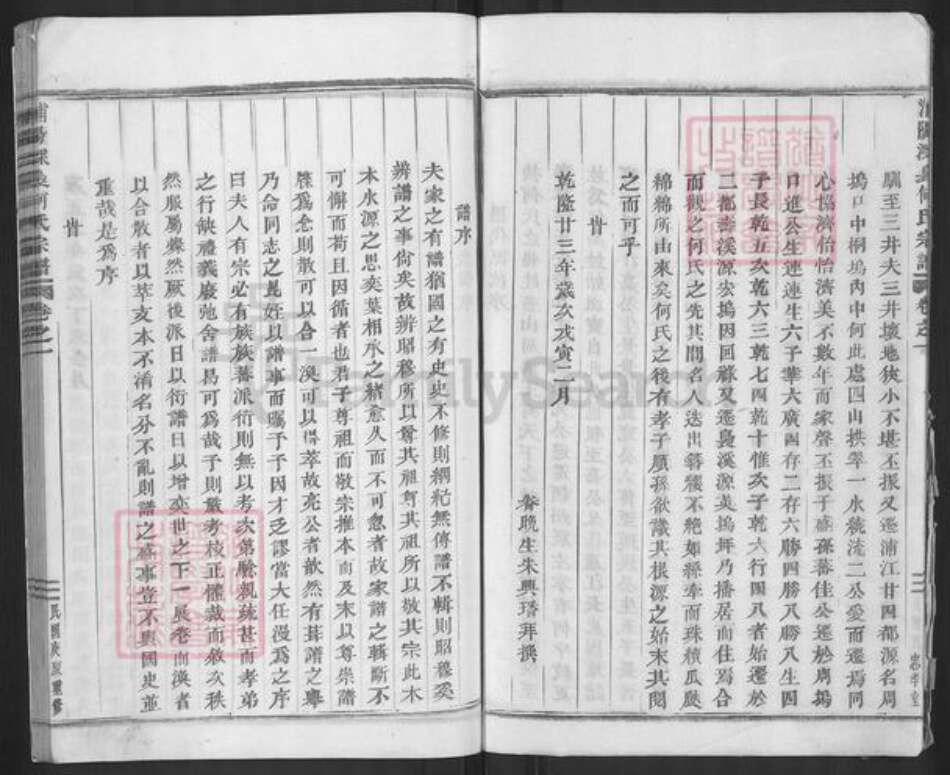 馴至三井夫三井壤地狹小不堪丕振又遷浦江廿四都源名周
塢口中桐塢內中何此處四山拱翠一水縈流二公愛而遷焉同
心協濟怡怡濟美不數年而家聲丕振于盛孫蕃佳公遷於周塢
口進公生連連生六子華六廣四存二存六勝四勝八勝八生四
子長乾五次乾六三乾七四乾十惟次子乾六行四八者始遷於
二都壽溪源宏塢因回祿又遷裊溪源英塢坪乃播居而住焉合
而觀之何氏之先其間名人迭出簪纓不絕如絲牽而珠積瓜瓞
綿綿所由來矣何氏之後有孝子順孫欲識其根源之始末其閱
之而可乎
旹
乾隆廿三年歲次戊寅二月
眷晚生朱興璠拜撰
譜序
夫家之有譜猶國之有史史不修則綱紀無傳譜不輯則昭穆奚
辨譜之事尙矣故辨昭穆所以尊其祖尊其祖所以敬其宗此木
本水源之思奕葉相承之緒愈久而不可忽者故家譜之輯斷不
可懈而苟且因循者也君子尊祖而敬宗推本而及末以尊崇譜
牒爲念則散可以合一渙可以得萃故亮公者歆然有葺譜之舉
乃命同志之昆姪以譜事而囑予予因才乏謬當大任漫爲之序
曰夫人有宗必有族族蕃派衍則無以考次第敵親疏甚而孝弟
之行缺禮義廢弛舍譜曷可爲哉子則嚴考校正體裁而敘次秩
然服屬燦然厥後派日以衍譜日以增奕世之下一展卷而渙者
以合散者以萃支本不淆名分不亂則譜之盛事豈不與國史並
重哉是爲序
旹
何氏宗譜
卷之一
民國庚午重修